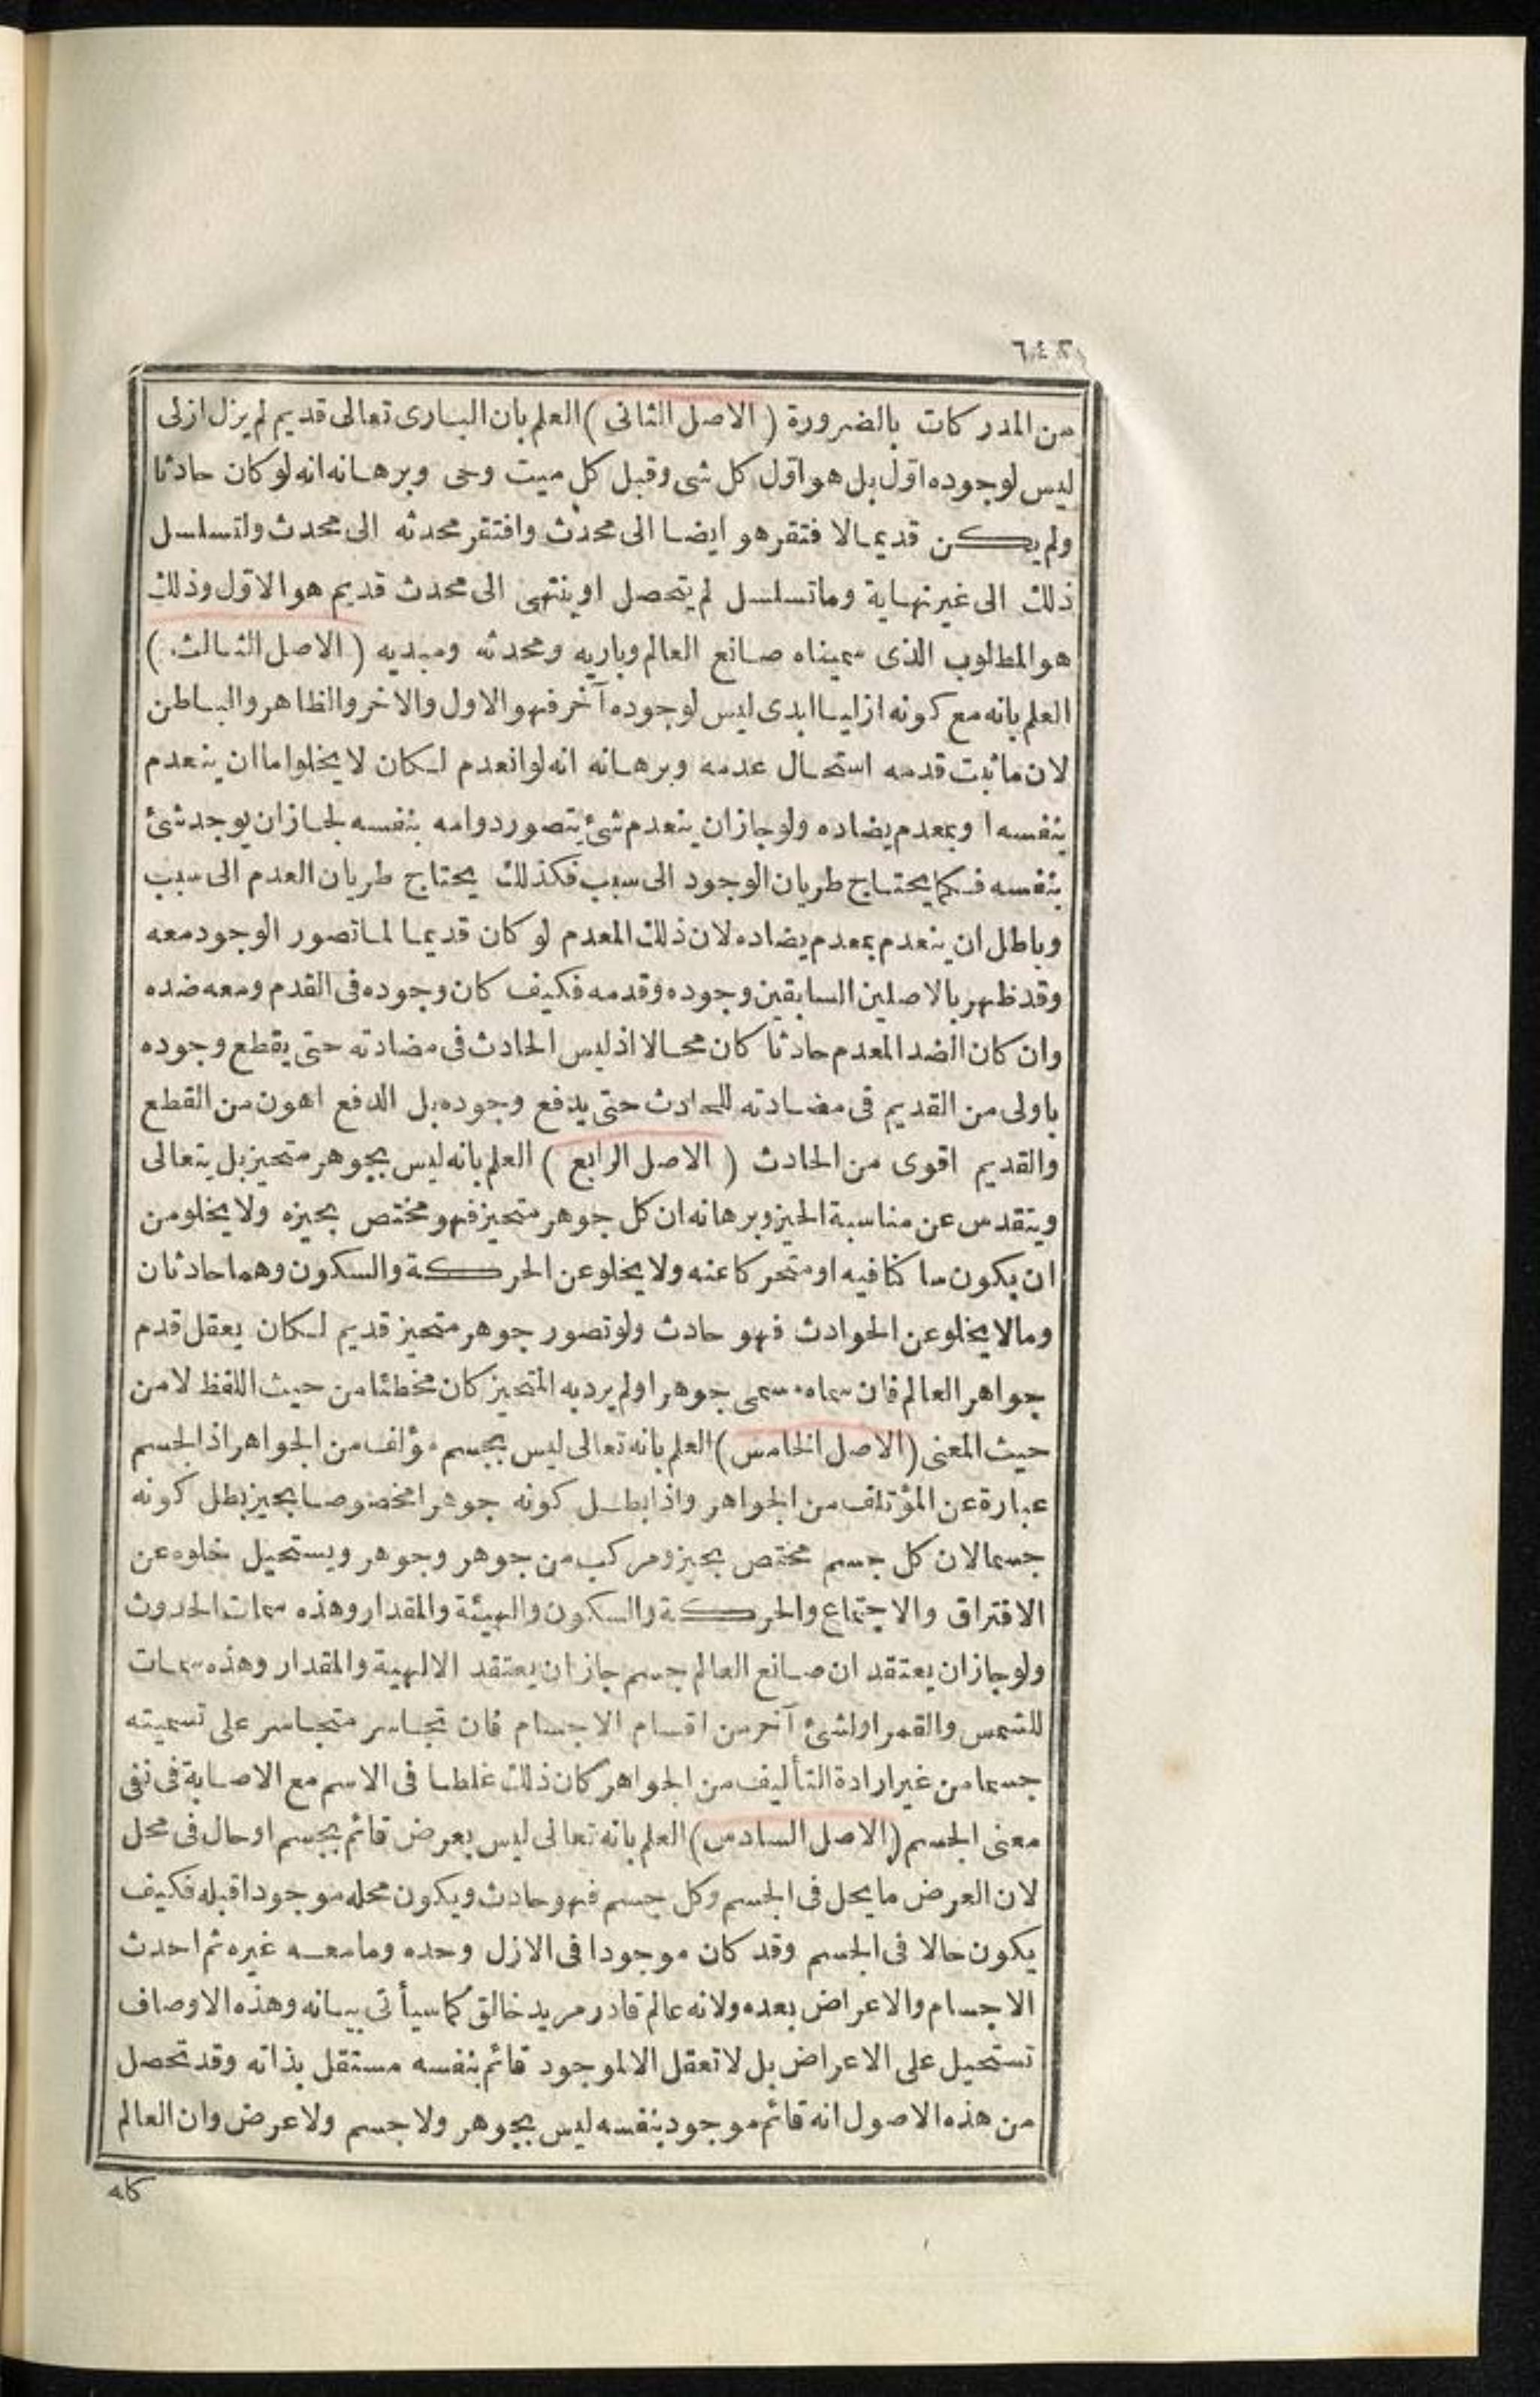 من المدركات بالضرورة ( الاصل الثانى ) العلم بان البارى تعالى قديم لم يزل ازلى
ليس لوجوده اوّل بل هو اوّل كل شى وقبل كل ميت وحى وبرهانه انه لو كان حادثا
ولم يكن قديما لافتقر هو ايضا الى محدث وافتقر محدثه الى محدث ولتسلسل
ذلك الى غير نهاية وما تسلسل لم يتحصل او ينتهى الى محدث قديم هو الاوّل وذلك
هو المطلوب الذى سميناه صانع العالم وباريه ومحدثه ومبديه ( الاصل الثالث )
العلم بانه مع كونه ازليا ابدى ليس لوجوده آخر فهو الاول والاخر والظاهر والباطن
لان ما ثبت قدمه استحال عدمه وبرهانه انه لو انعدم لكان لا يخلو اما ان ينعدم
بنفسه او بمعدم يضاده ولو جاز ان ينعدم شئ يتصور دوامه بنفسه لجاز ان يوجد شئ
بنفسه فكما يحتاج طريان الوجود الى سبب فكذلك يحتاج طريان العدم الى سبب
وباطل ان ينعدم بمعدم يضاده لان ذلك المعدم لو كان قديما لما تصور الوجود معه
وقد ظهر بالاصلين السابقين وجوده وقدمه فكيف كان وجوده فى القدم ومعه ضده
وان كان الضد المعدم حادثا كان محالا اذ ليس الحادث فى مضادته حتى يقطع وجوده
باولى من القديم فى مضادته للحادث حتى يدفع وجوده بل الدفع اهون من القطع
والقديم اقوى من الحادث ( الاصل الرابع ) العلم بانه ليس بجوهر متحيز بل يتعالى
ويتقدس عن مناسبة الحيز وبرهانه ان كل جوهر متحيز فهو مختص بحيزه ولا يخلو من
ان يكون ساكنا فيه او متحركا عنه ولا يخلو عن الحركة والسكون وهما حادثان
وما لا يخلو عن الحوادث فهو حادث ولو تصور جوهر متحيز قديم لكان يعقل قدم
جواهر العالم فان سماه مسمى جوهرا ولم يرد به المتحيز كان مخطئا من حيث اللفظ لا من
حيث المعنى ( الاصل الخامس ) العلم بانه تعالى ليس بجسم مؤلف من الجواهر اذ الجسم
عبارة عن المؤتلف من الجواهر واذا بطل كونه جوهرا مخصوصا بحيز بطل كونه
جسما لان كل جسم مختص بحيز ومركب من جوهر وجوهر ويستحيل خلوه عن
الافتراق والاجتماع والحركة والسكون والهيئة والمقدار وهذه سمات الحدوث
ولو جاز ان يعتقد ان صانع العالم جسم جاز ان يعتقد الالهية والمقدار وهذه سمات
للشمس والقمر او لشئ آخر من اقسام الاجسام فان تجاسر متجاسر على تسميته
جسما من غير ارادة التأليف من الجواهر كان ذلك غلطا فى الاسم مع الاصابة فى نفى
معنى الجسم ( الاصل السادس ) العلم بانه تعالى ليس بعرض قائم بجسم او حال فى محل
لان العرض ما يحل فى الجسم وكل جسم فهو حادث ويكون محله موجودا قبله فكيف
يكون حالا فى الجسم وقد كان موجودا فى الازل وحده وما معه غيره ثم احدث
الاجسام والاعراض بعده ولانه عالم قادر مريد خالق كما سيأتى بيانه وهذه الاوصاف
تستحيل على الاعراض بل لا تعقل الا لموجود قائم بنفسه مستقل بذاته وقد تحصل
من هذه الاصول انه قائم موجود بنفسه ليس بجوهر ولا جسم ولا عرض وان العالم
كله